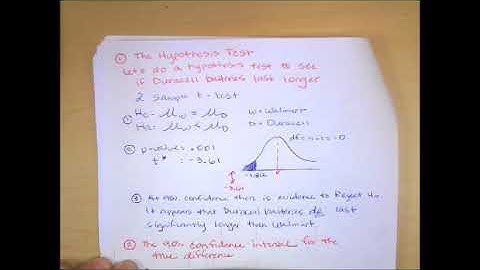 ① The Hypothesis Test
Let's do a hypothesis test to see
if Duracell batteries last longer
2 Sample t-test
① Ho: μw = μD w = Walmart
Ha: μw ≤ μD D = Duracell
② p-value: .001
t* = -3.61
df =
-1.812
-3.61
③ At 90% confidence there is evidence to Reject Ho
It appears that Duracell batteries do last
significantly longer than Walmart.
② The 90% confidence interval for the
true difference